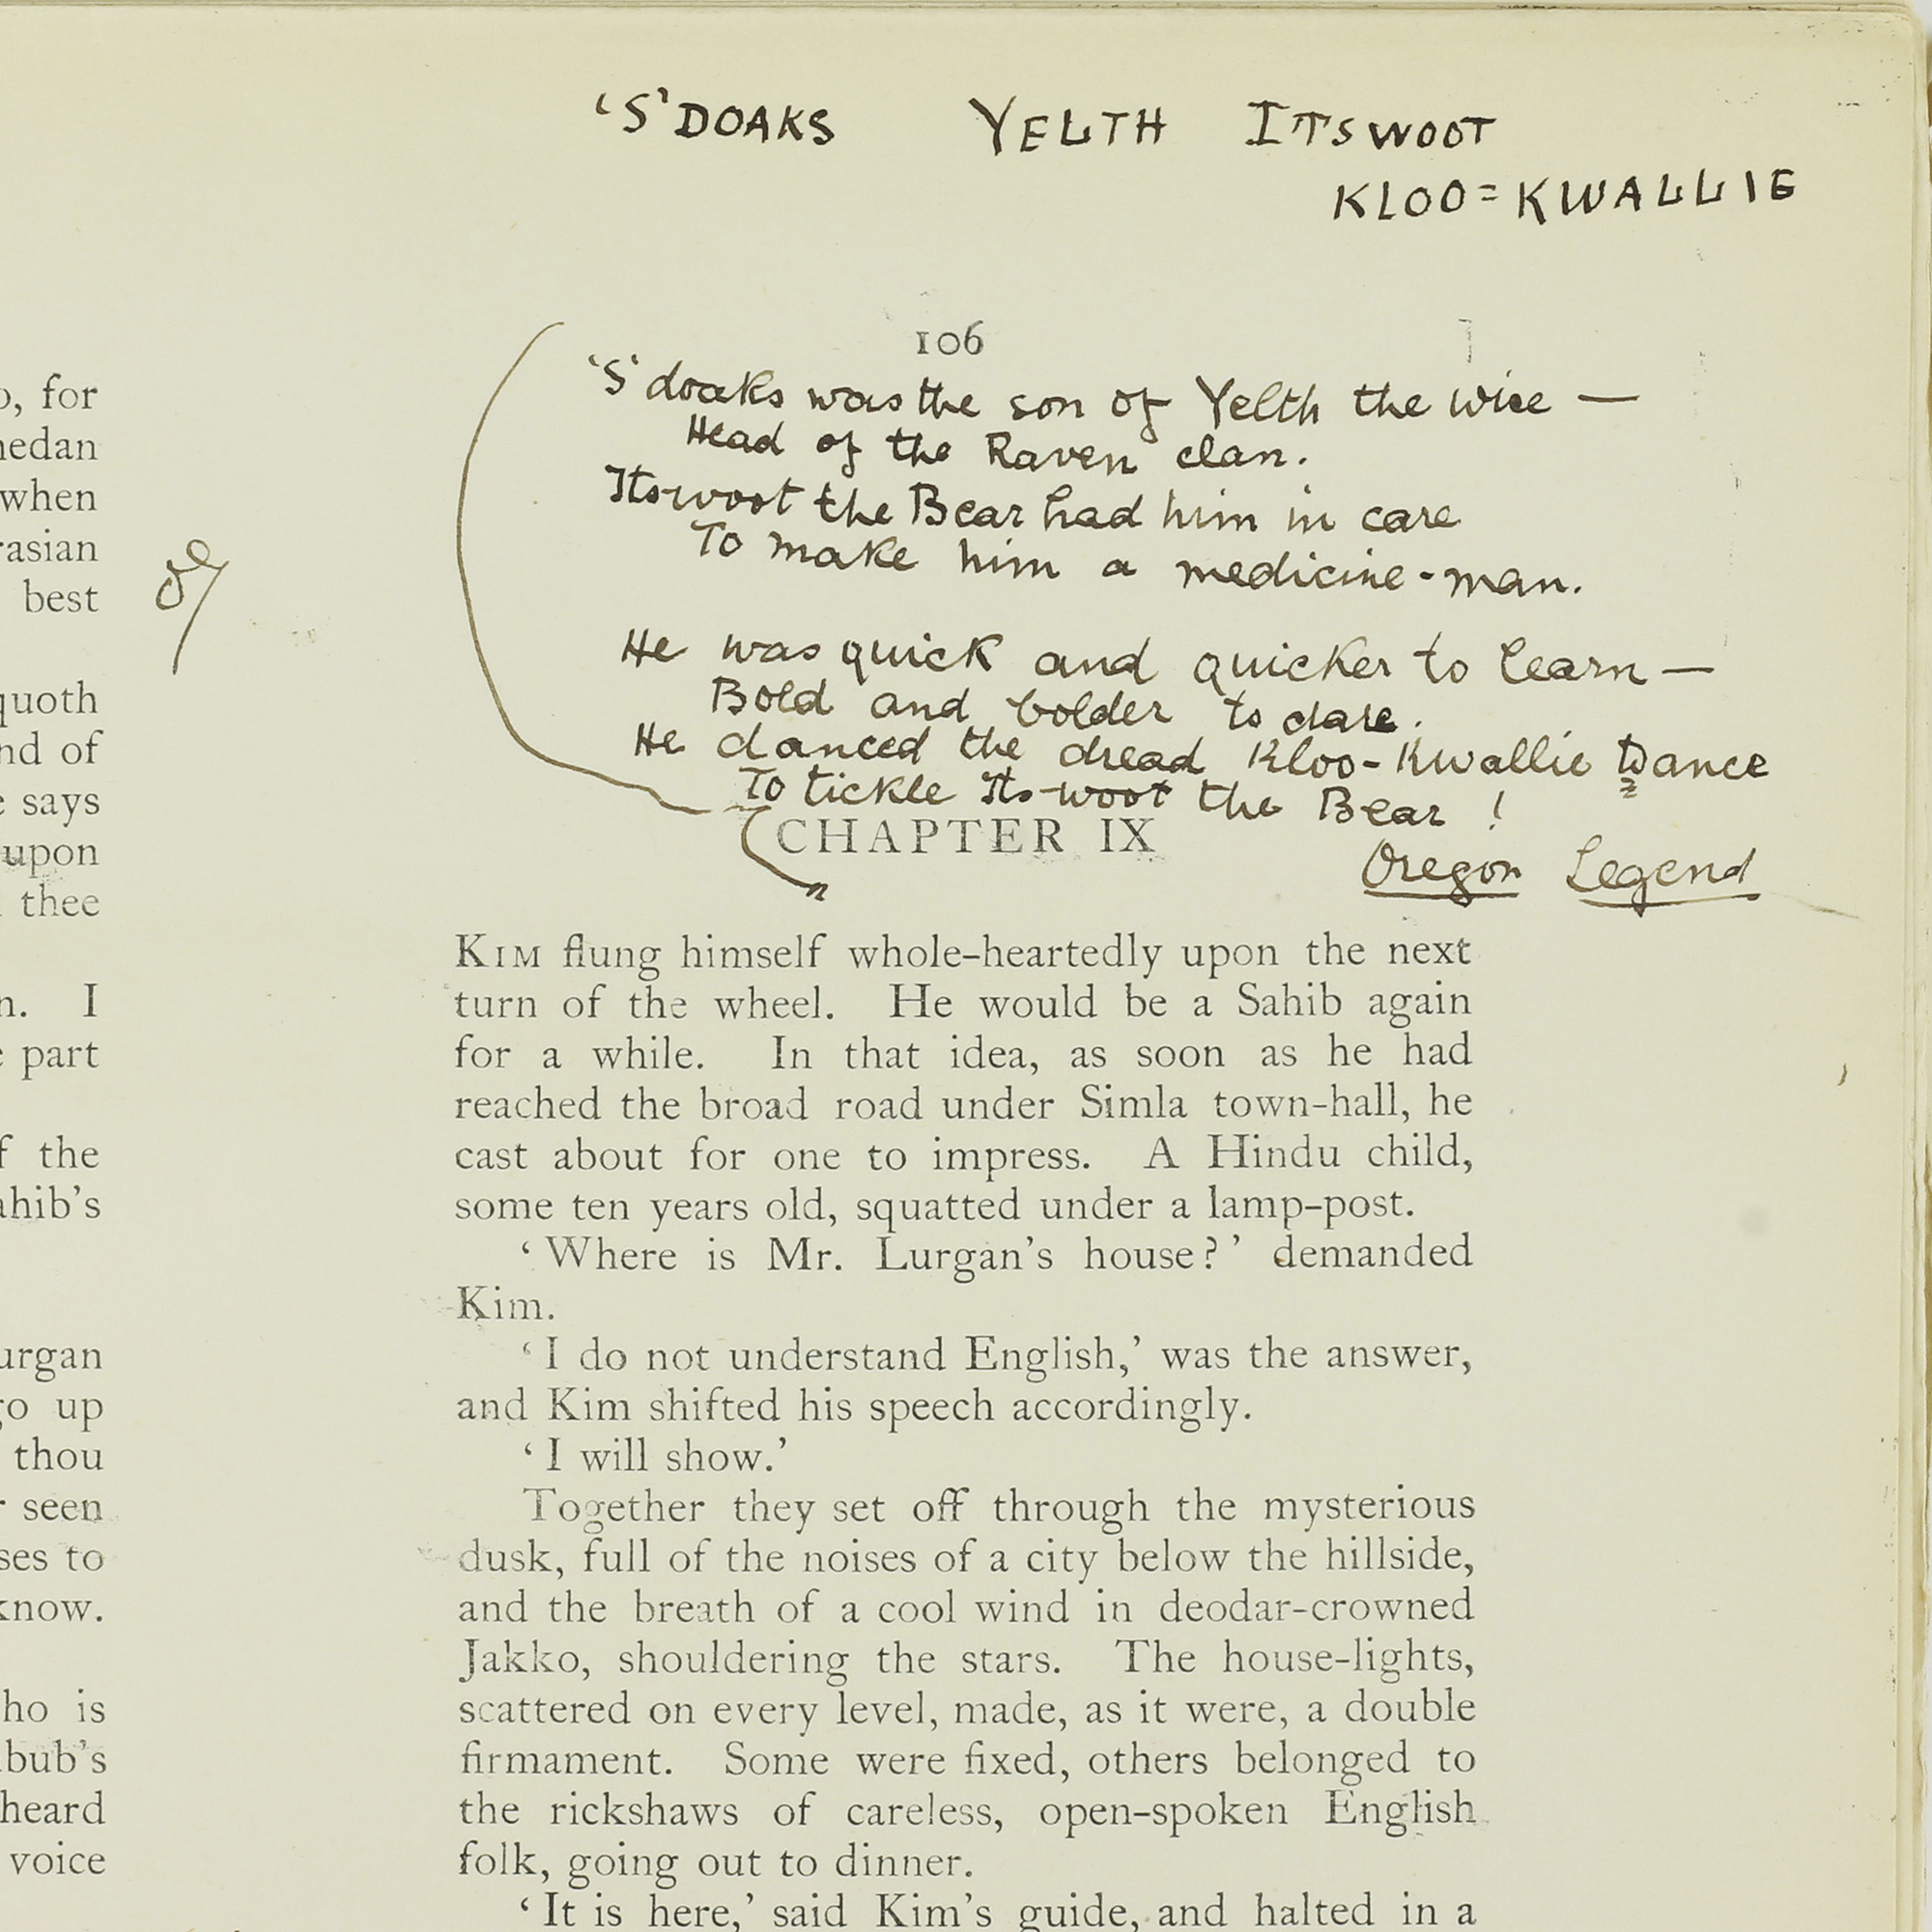 'S'DOAKS YELTH ITSWOOT
KLOO=KWALLIE
106
'S'doaks was the son of Yelth the wise —
Head of the Raven clan.
Its-woot the Bear had him in care
To make him a medicine-man.
He was quick and quicker to learn —
Bold and bolder to dare.
He danced the dread Kloo-Kwallie Dance
To tickle Its-woot the Bear!
Oregon Legend
CHAPTER IX
KIM flung himself whole-heartedly upon the next
turn of the wheel. He would be a Sahib again
for a while. In that idea, as soon as he had
reached the broad road under Simla town-hall, he
cast about for one to impress. A Hindu child,
some ten years old, squatted under a lamp-post.
'Where is Mr. Lurgan's house?' demanded
Kim.
'I do not understand English,' was the answer,
and Kim shifted his speech accordingly.
'I will show.'
Together they set off through the mysterious
dusk, full of the noises of a city below the hillside,
and the breath of a cool wind in deodar-crowned
Jakko, shouldering the stars. The house-lights,
scattered on every level, made, as it were, a double
firmament. Some were fixed, others belonged to
the rickshaws of careless, open-spoken English
folk, going out to dinner.
'It is here,' said Kim's guide, and halted in a